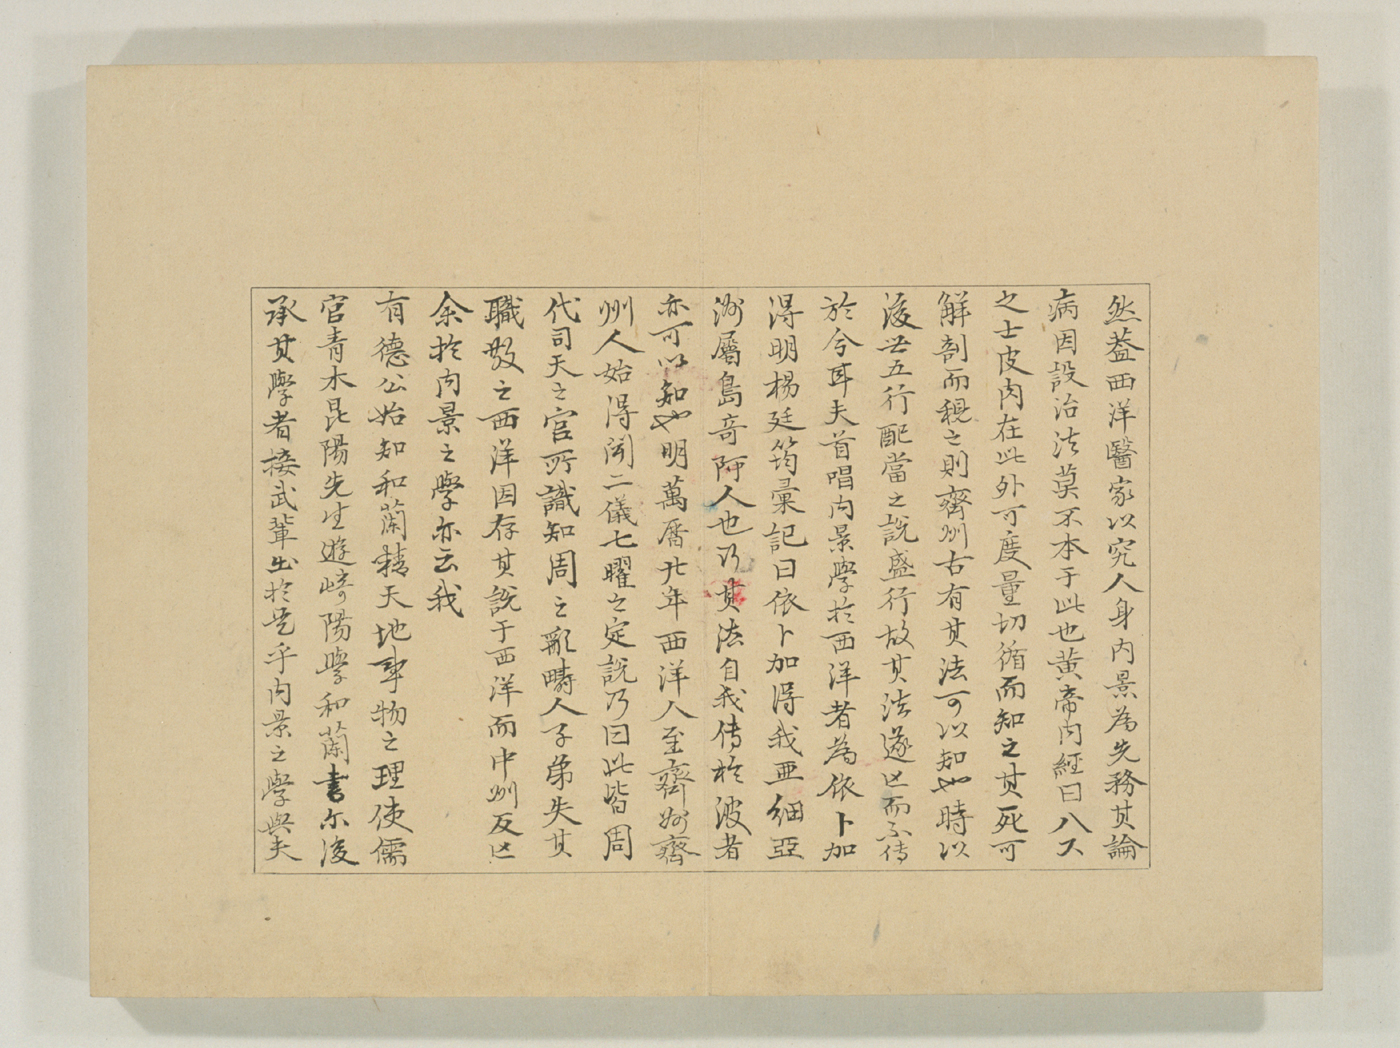 然蓋西洋醫家以究人身内景為先務其論
病因設治法莫不本于此也黄帝内經曰八尺
之士皮肉在此外可度量切循而知之其死可
解剖而視之則齊州古有其法可以知也時以
後世五行配當之説盛行故其法遂亡而不傳
於今耳夫首唱内景學於西洋者為依卜加
得明楊廷筠彙記曰依卜加得我亜細亞
洲屬島哥阿人也乃其法自我傳於波者
亦可以知也明萬曆廿年西洋人至齊州齊
州人始得聞二儀七曜之定説乃曰此皆周
代司天之官所識知周之衰疇人子弟失其
職散之西洋因存其説于西洋而中州反亡
余於内景之學亦云我
有德公始知和蘭精天地事物之理使儒
官青木昆陽先生遊崎陽學和蘭書尓後
承其學者接武輩出於是乎内景之學與夫